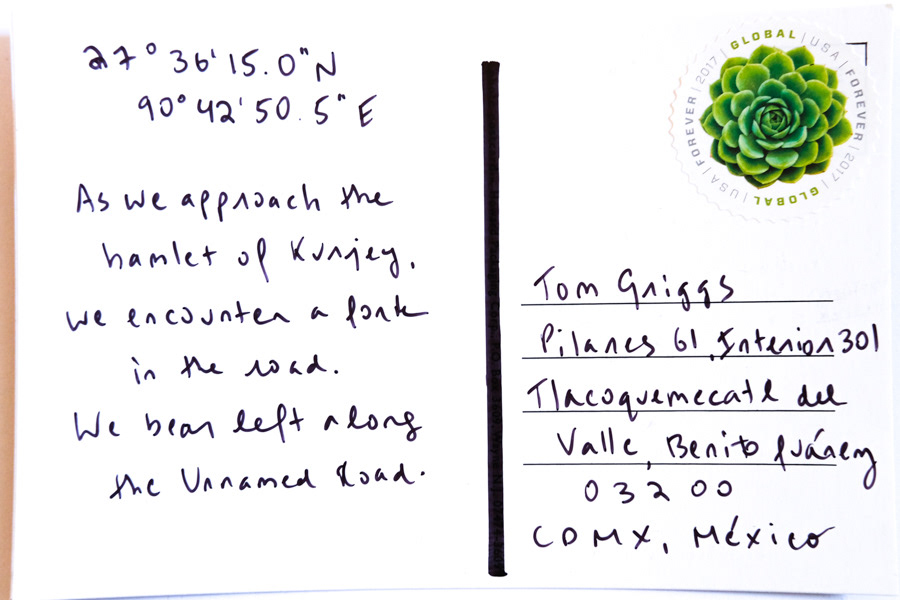 27° 36' 15.0" N
90° 42' 50.5" E
As we approach the
hamlet of Kurjey,
we encounter a fork
in the road.
We bear left along
the Unnamed Road.
GLOBAL | USA | FOREVER | 2017 | GLOBAL | USA | FOREVER | 2017 |
Tom Griggs
Pilares 61, Interior 301
Tlacoquemecatl del
Valle, Benito Juárez
03200
CDMX, México